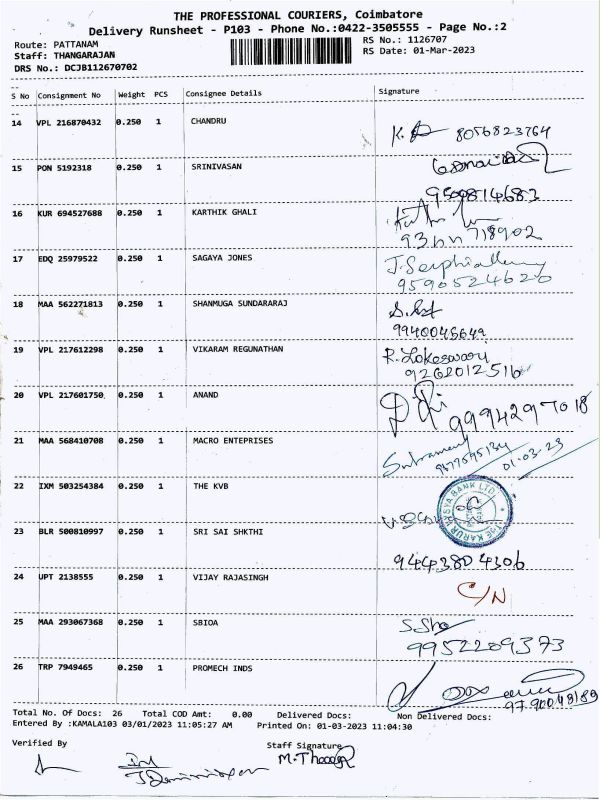 THE PROFESSIONAL COURIERS, Coimbatore
Delivery Runsheet - P103 - Phone No.:0422-3505555 - Page No.:2
Route: PATTANAM
RS No.: 1126707
Staff: THANGARAJAN
RS Date: 01-Mar-2023
DRS No.: DCJB112670702
S No Consignment No Weight PCS Consignee Details Signature
14 VPL 216870432 0.250 1 CHANDRU
8056823764
15 PON 5192318 0.250 1 SRINIVASAN
9500814683
16 KUR 694527688 0.250 1 KARTHIK GHALI
17 EDQ 25979522 0.250 1 SAGAYA JONES
9590524620
18 MAA 562271813 0.250 1 SHANMUGA SUNDARARAJ
9940045649
19 VPL 217612298 0.250 1 VIKARAM REGUNATHAN
R. Lokeswari
9262012516
20 VPL 217601750 0.250 1 ANAND
9994297018
21 MAA 568410708 0.250 1 MACRO ENTEPRISES
9677595134
01-03-23
22 IXM 503254384 0.250 1 THE KVB
THE KARUR VYSYA BANK LTD
23 BLR 500810997 0.250 1 SRI SAI SHKTHI
9443804306
24 UPT 2138555 0.250 1 VIJAY RAJASINGH
C/N
25 MAA 293067368 0.250 1 SBIOA
9952209373
26 TRP 7949465 0.250 1 PROMECH INDS
9790048189
Total No. Of Docs: 26 Total COD Amt: 0.00 Delivered Docs: Non Delivered Docs:
Entered By :KAMALA103 03/01/2023 11:05:27 AM Printed On: 01-03-2023 11:04:30
Verified By
Staff Signature